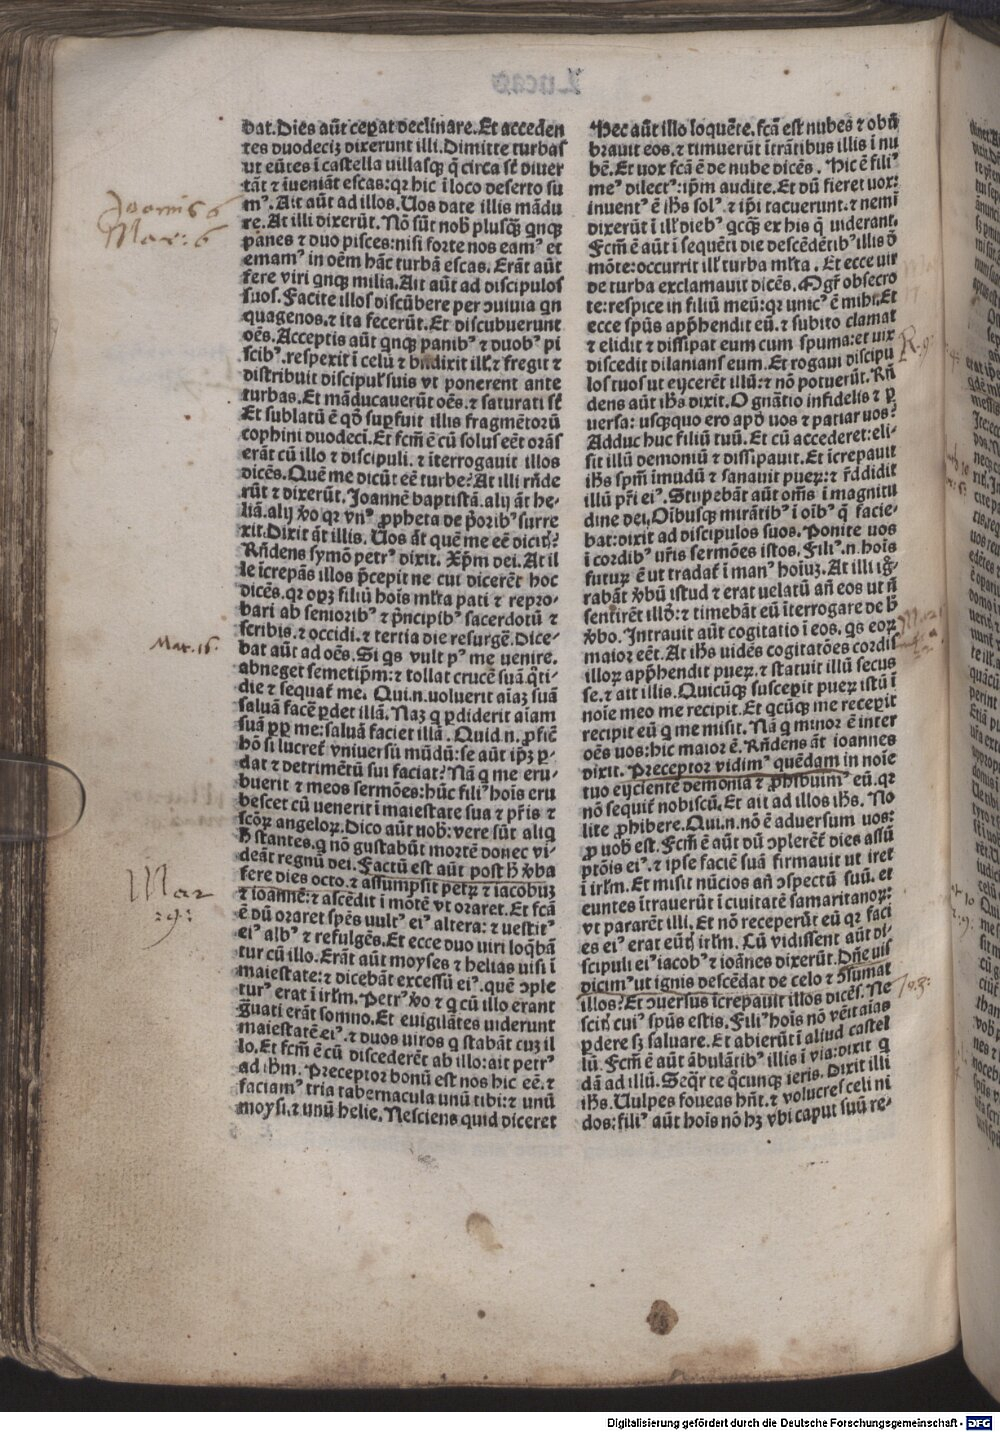 Lucas
dat. Dies aūt cep̄at declinare. Et acceden
tes duodeciʒ dixerunt illi. Dimitte turbas
ut eūtes ī castella uillasqʒ q̄ circa sūt diuer
tāt ⁊ iueniāt escas: qꝛ hic ī loco deserto su
mꝰ. Ait aūt ad illos. Uos date illis mādu
re. At illi dixerūt. Nō sūt nob̄ plusqʒ̄ qnqʒ
panes ⁊ duo pisces: nisi forte nos eamꝰ et
emamꝰ in oēm hāc turbā escas. Erāt aūt
fere viri qnqʒ milia. Ait aūt ad discipulos
suos. Facite illos discūbere per ↄuiuia qn
quagenos. ⁊ ita fecerūt. Et discubuerunt
oēs. Acceptis aūt qnqʒ panibꝰ ⁊ duobꝰ pi
scibꝰ. respexit ī celū ⁊ bn̄dixit ill̓. ⁊ fregit ⁊
distribuit discipul̓ suis vt ponerent ante
turbas. Et māducauerūt oēs. ⁊ saturati sūt
Et sublatū ē qd̓ suꝑfuit illis fragmētorū
cophini duodeci. Et fcm̄ ē cū solus eēt orās
erāt cū illo ⁊ discipuli. ⁊ īterrogauit illos
dicēs. Quē me dicūt eē turbe? At illi rn̄de
rūt ⁊ dixerūt. Joannē baptistā. alij āt he-
liā. alij ꝟo qꝛ vnꝰ ꝓpheta de p̄oribꝰ surre
xit. Dixit āt illis. Uos āt quē me eē dicitʒ?
Rn̄dens symō petrꝰ dixit. Xp̄m dei. At il
le īcrepās illos p̄cepit ne cui dicerēt hoc
dicēs. qꝛ opʒ filiū hoīs ml̓ta pati ⁊ repro-
bari ab senioribꝰ ⁊ p̄ncipibꝰ sacerdotū ⁊
scribis. ⁊ occidi. ⁊ tertia die resurgē. Dice-
bat aūt ad oēs. Si qs vult pꝰ me uenire.
abneget semetip̄m: ⁊ tollat crucē suā q̄ti-
die ⁊ sequat᷑ me. Qui.n. uoluerit aīaʒ suā
saluā facē ꝑdet illā. Naʒ q ꝑdiderit aīam
suā ꝓp̄ me: saluā faciet illā. Quid.n. ꝓfic̄
hō si lucret᷑ vniuersū mūdū: se aūt ip̄ʒ ꝑ-
dat ⁊ detrimētū sui faciat? Nā q me eru-
buerit ⁊ meos sermōes: hūc filiꝰ hoīs eru
bescet cū uenerit ī maiestate sua ⁊ pr̄is ⁊
scōꝝ angeloꝝ. Dico aūt uob̄: vere sūt aliq
h̄ stantes. q nō gustabūt mortē donec vi-
deāt regnū dei. Factū est aūt post h̄ ꝟba
fere dies octo. ⁊ assumpsit petꝝ ⁊ iacobuʒ
⁊ ioannē: ⁊ ascēdit ī mōtē vt oraret. Et fcā
ē dū oraret spēs uultꝰ eiꝰ altera: ⁊ uestitꝰ
eiꝰ albꝰ ⁊ refulgēs. Et ecce duo uiri loq̄bā
tur cū illo. Erāt aūt moyses ⁊ helias uisi ī
maiestate: ⁊ dicebāt excessū eiꝰ. quē ↄple
turꝰ erat ī irl̓m. Petrꝰ ꝟo ⁊ q cū illo erant
g̓uati erāt somno. Et euigilātes uiderunt
maiestatē eiꝰ. ⁊ duos uiros q stabāt cuʒ il
lo. Et fcm̄ ē cū discederēt ab illo: ait petrꝰ
ad ih̄m. Preceptor bonū est nos hic eē. ⁊
faciamꝰ tria tabernacula unū tibi: ⁊ unū
moysi. ⁊ unū helie. Nesciens quid diceret
Hec aūt illo loquēte. fcā est nubes ⁊ obū
brauit eos. ⁊ timuerūt ītrātibus illis ī nu
bē. Et uox fcā ē de nube dicēs. Hic ē filiꝰ
meꝰ dilectꝰ: ip̄m audite. Et dū fieret uox:
inuentꝰ ē ih̄s solꝰ. ⁊ ip̄i tacuerunt. ⁊ nemī
dixerūt ī ill̓ diebꝰ qcqʒ ex his q̄ uiderant.
Fcm̄ ē aūt ī sequēti die descēdētibꝰ illis d̓
mōte: occurrit ill̓ turba ml̓ta. Et ecce uir
de turba exclamauit dicēs. Mgr̄ obsecro
te: respice in filiū meū: qꝛ unicꝰ ē mihi. Et
ecce sp̄us app̄hendit eū. ⁊ subito clamat
⁊ elidit ⁊ dissipat eum cum spuma: et uix
discedit dilanians eum. Et rogaui discipu
los tuos ut eijcerēt illū: ⁊ nō potuerūt. Rn̄
dens aūt ih̄s dixit. O gn̄atio infidelis ⁊ ꝑ
uersa: usqʒquo ero apd̓ uos ⁊ patiar uos?
Adduc huc filiū tuū. Et cū accederet: eli-
sit illū demoniū ⁊ dissipauit. Et īcrepauit
ih̄s sp̄m īmūdū ⁊ sanauit pueꝝ: ⁊ r̄ddidit
illū pr̄i eiꝰ. Stupebāt aūt om̄s ī magnitu
dine dei. Oībusqʒ mirātibꝰ ī oībꝰ q̄ facie-
bat: dixit ad discipulos suos. Ponite uos
ī cordibꝰ ur̄is sermōes istos. Filiꝰ.n. hoīs
futuꝝ ē ut tradat᷑ ī manꝰ hoīuʒ. At illi ig̓-
rabāt ꝟbū istud ⁊ erat uelatū añ eos ut n̄
sentirēt illd̓: ⁊ timebāt eū īterrogare de h̄
ꝟbo. Intrauit aūt cogitatio ī eos. qs eoꝝ
maior eēt. At ih̄s uidēs cogitatōes cordis
illoꝝ app̄hendit pueꝝ. ⁊ statuit illū secus
se. ⁊ ait illis. Quicūqʒ susceperit pueꝝ istū ī
noīe meo me recipit. Et qcūqʒ me receperit
recipit eū q me misit. Nā q minor ē inter
oēs uos: hic maior ē. Rn̄dens āt ioannes
dixit. Preceptor vidimꝰ quēdam in noīe
tuo eijciente demonia ⁊ ꝓhibuimꝰ eū. qꝛ
nō sequit᷑ nobiscū. Et ait ad illos ih̄s. No
lite ꝓhibere. Qui.n. nō ē aduersum uos:
ꝓ uob̄ est. Fcm̄ ē aūt dū ↄplerēt᷑ dies assū
ptōis eiꝰ. ⁊ ipse faciē suā firmauit ut iret
ī irl̓m. Et misit nūcios añ ↄspectū suū. et
euntes ītrauerūt ī ciuitatē samaritanoꝝ:
vt pararēt illi. Et nō receperūt eū qꝛ faci
es eiꝰ erat eūtʒ irl̓m. Cū vidissent aūt di-
scipuli eiꝰ iacobꝰ ⁊ ioānes dixerūt. Dn̄e uis
dicimꝰ ut ignis descēdat de celo ⁊ ↄsumat
illos? Et ↄuersus īcrepauit illos dicēs. Ne
scitʒ cuiꝰ sp̄us estis. Filiꝰ hoīs nō vēit aīas
ꝑdere sʒ saluare. Et abierūt ī aliud castel
lū. Fcm̄ ē aūt ābulātibꝰ illis ī via: dixit q
dā ad illū. Seqr̄ te q̊cunqʒ ieris. Dixit illi
ih̄s. Uulpes foueas hn̄t. ⁊ volucres celi ni
dos: filiꝰ aūt hoīs nō hʒ vbi caput suū re-
Joannis 6
Mar: 6
Mar. 16.
Mar
9:
Digitalisierung gefördert durch die Deutsche Forschungsgemeinschaft - DFG